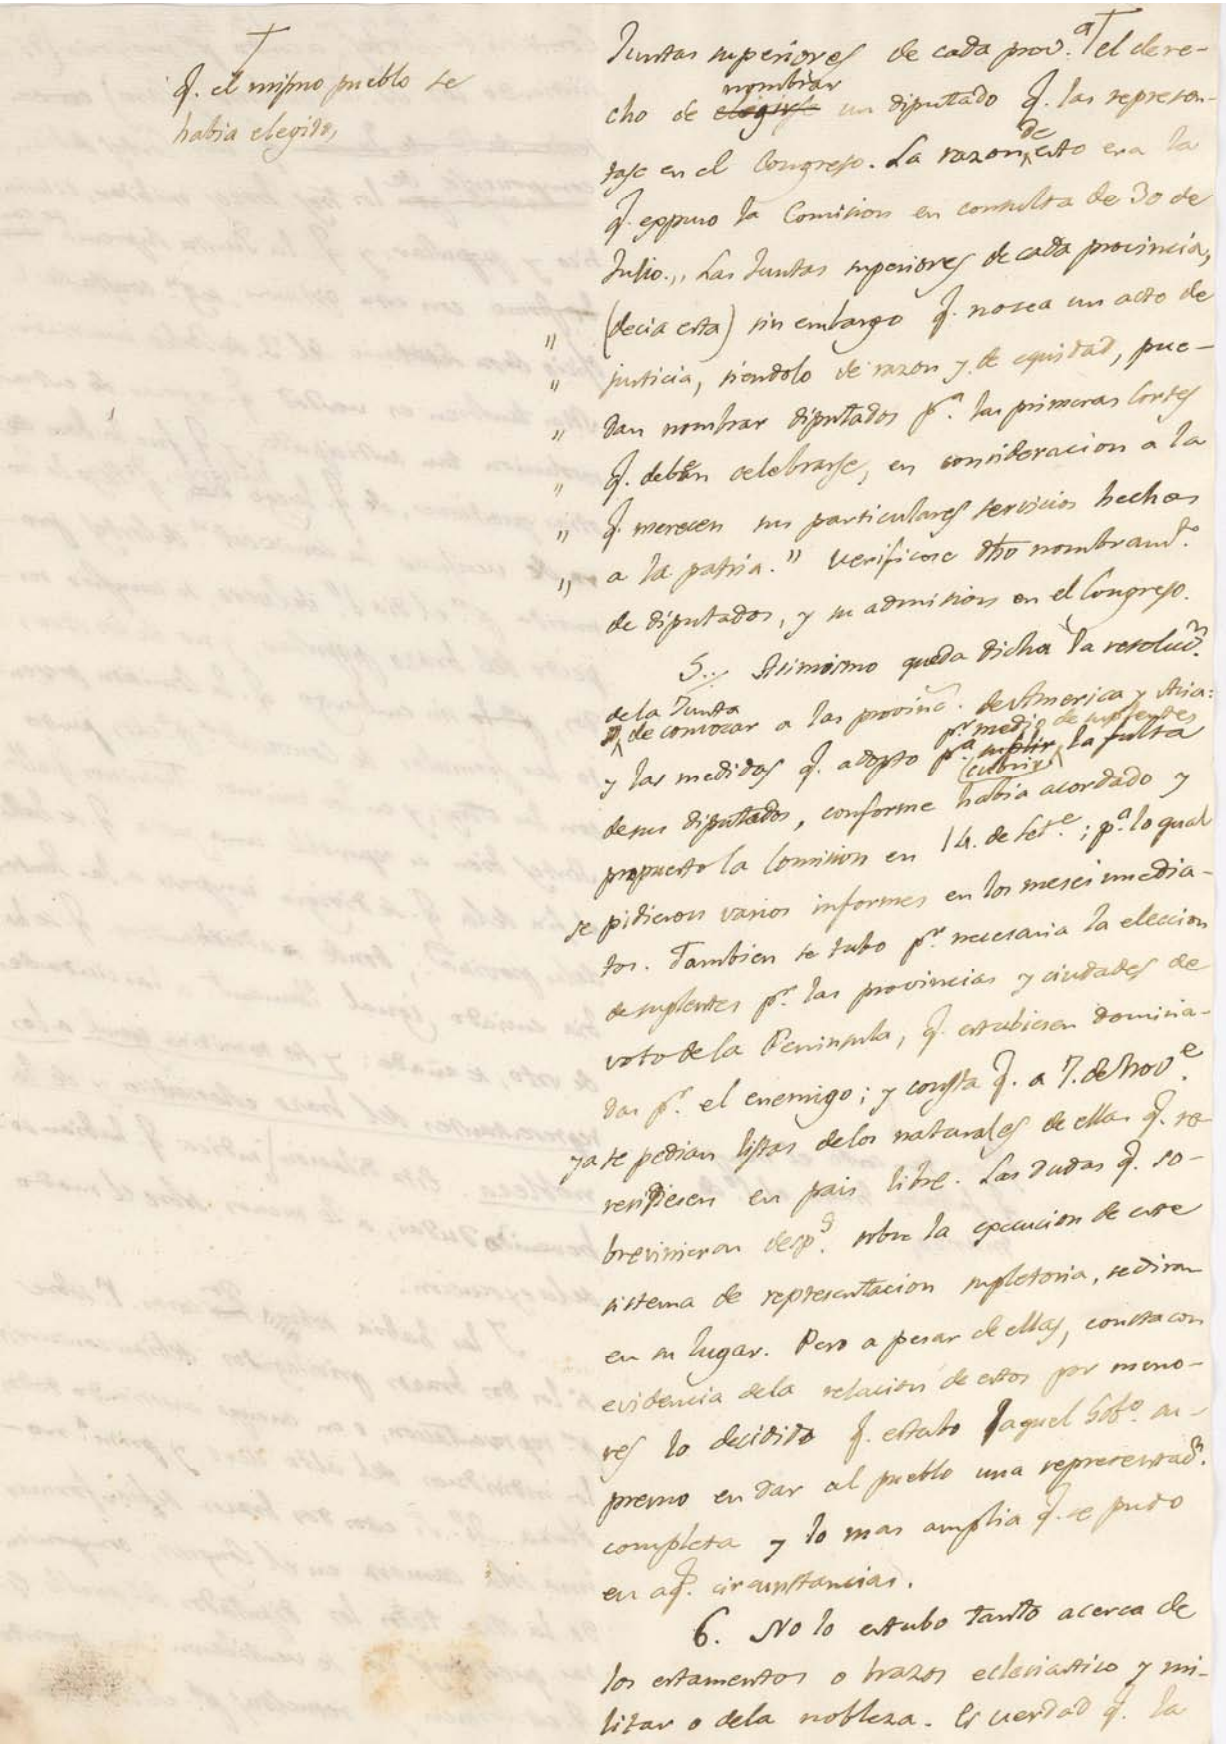 †
q. el mismo pueblo se
habia elegido,
Juntas superiores de cada prov.ª † el dere-
nombrar
cho de elegirse un diputado q. las represen-
tase en el Congreso. La razon de esto era la
q. expuso la Comision en consulta de 30 de
Julio.,, Las Juntas superiores de cada provincia,
" (decia esta) sin embargo q. no sea un acto de
" justicia, siendolo de razon y de equidad, pue-
" dan nombrar diputados p.ª las primeras Cortes
" q. deben celebrarse, en consideracion a la
" q. merecen sus particulares servicios hechos
" a la patria." Verificose dho nombram.to
de diputados, y su admision en el Congreso.
5.. Asimismo queda dicha la resoluc.n
de la Junta
de convocar a las provinc. de America y Asia:
p.r medio de suplentes
y las medidas q. adopto p.ª suplir la falta
(cubrir
de sus diputados, conforme habia acordado y
propuesto la Comision en 14. de Set.e; p.ª lo qual
se pidieron varios informes en los meses inmedia-
tos. Tambien se tubo p.r necesaria la eleccion
de suplentes p.r las provincias y ciudades de
voto de la Peninsula, q. estubiesen domina-
das p.r el enemigo; y consta q. a 7. de Nov.e
ya se pedian listas de los naturales de ellas q. re-
sidiesen en pais libre. Las dudas q. so-
brevinieron desp.s sobre la execucion de este
sistema de representacion supletoria, se diran
en su lugar. Pero a pesar de ellas, consta con
evidencia de la relacion de estos por meno-
res lo decidido q. estubo aquel Gob.o su-
premo en dar al pueblo una representac.n
completa y lo mas amplia q. se pudo
en aq. circunstancias.
6. No lo estubo tanto acerca de
los estamentos o brazos eclesiastico y mi-
litar o de la nobleza. Es verdad q. la